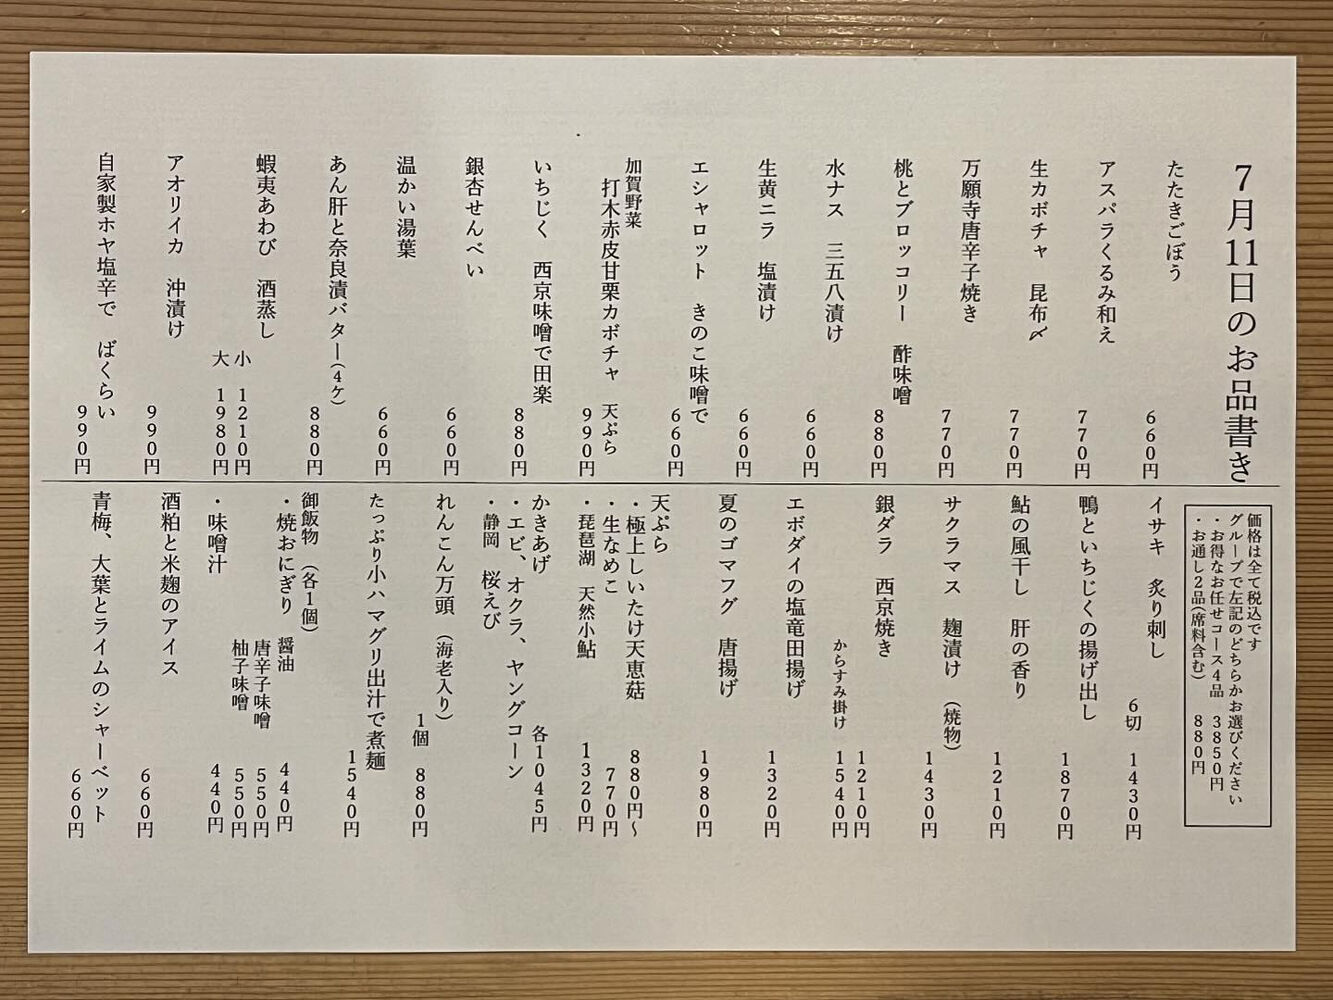 7月11日のお品書き
たたきごぼう
660円
アスパラくるみ和え
770円
生カボチャ　昆布〆
770円
万願寺唐辛子焼き
770円
桃とブロッコリー　酢味噌
880円
水ナス　三五八漬け
660円
生黄ニラ　塩漬け
660円
エシャロット　きのこ味噌で
660円
加賀野菜
打木赤皮甘栗カボチャ　天ぷら
990円
いちじく　西京味噌で田楽
880円
銀杏せんべい
660円
温かい湯葉
660円
あん肝と奈良漬バター(4ケ)
880円
蝦夷あわび　酒蒸し
小　1210円
大　1980円
アオリイカ　沖漬け
990円
自家製ホヤ塩辛で　ばくらい
990円
価格は全て税込です
グループで左記のどちらかお選びください
・お得なお任せコース4品　3850円
・お通し2品(席料含む)　880円
イサキ　炙り刺し
6切　1430円
鴨といちじくの揚げ出し
1870円
鮎の風干し　肝の香り
1210円
サクラマス　麹漬け　(焼物)
1430円
銀ダラ　西京焼き
1210円
からすみ掛け　1540円
エボダイの塩竜田揚げ
1320円
夏のゴマフグ　唐揚げ
1980円
天ぷら
・極上しいたけ天恵菇　880円〜
・生なめこ　770円
・琵琶湖　天然小鮎　1320円
かきあげ　各1045円
・エビ、オクラ、ヤングコーン
・静岡　桜えび
れんこん万頭　(海老入り)
1個　880円
たっぷり小ハマグリ出汁で煮麺
1540円
御飯物　(各1個)
・焼おにぎり　醤油　440円
唐辛子味噌　550円
柚子味噌　550円
・味噌汁　440円
酒粕と米麹のアイス
660円
青梅、大葉とライムのシャーベット
660円